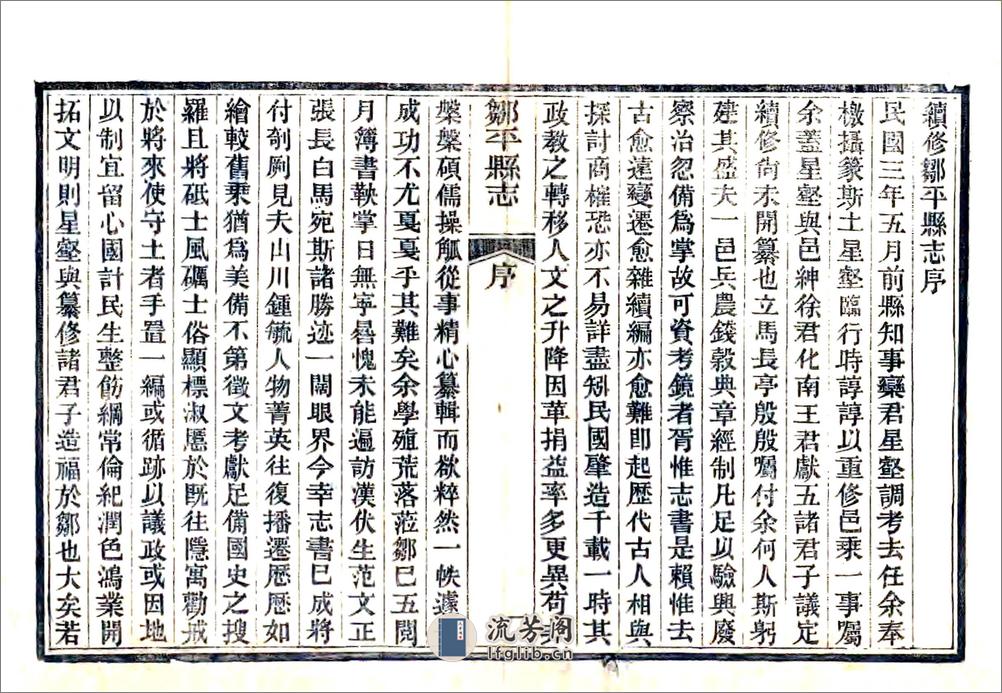 續修鄒平縣志序
民國三年五月前縣知事欒君星壑調考去任余奉
檄攝篆斯土星壑臨行時諄諄以重修邑乘一事屬
余蓋星壑與邑紳徐君化南王君獻五諸君子議定
續修尚未開纂也立馬長亭殷殷屬付余何人斯躬
建其盛夫一邑兵農錢穀典章經制凡足以驗興廢
察治忽備為掌故可資考鏡者胥惟志書是賴惟去
古愈遠變遷愈雜續編亦愈難即起歷代古人相與
探討商榷恐亦不易詳盡矧民國肇造千載一時其
政教之轉移人文之升降因革捐益率多更異苟
鄒平縣志
序
槃槃碩儒操觚從事精心纂輯而欲粹然一帙遽
成功不尤戛戛乎其難矣余學殖荒落蒞鄒已五閱
月簿書鞅掌日無寧晷愧未能遍訪漢伏生范文正
張長白馬宛斯諸勝迹一闊眼界今幸志書已成將
付剞劂見夫山川鍾毓人物菁英往復播遷歷歷如
繪較舊乘猶為美備不第徵文考獻足備國史之搜
羅且將砥士風礪士俗顯標淑慝於既往隱寓勸戒
於將來使守土者手置一編或循跡以議政或因地
以制宜留心國計民生整飭綱常倫紀潤色鴻業開
拓文明則星壑與纂修諸君子造福於鄒也大矣若
流芳閣
lfglib.cn